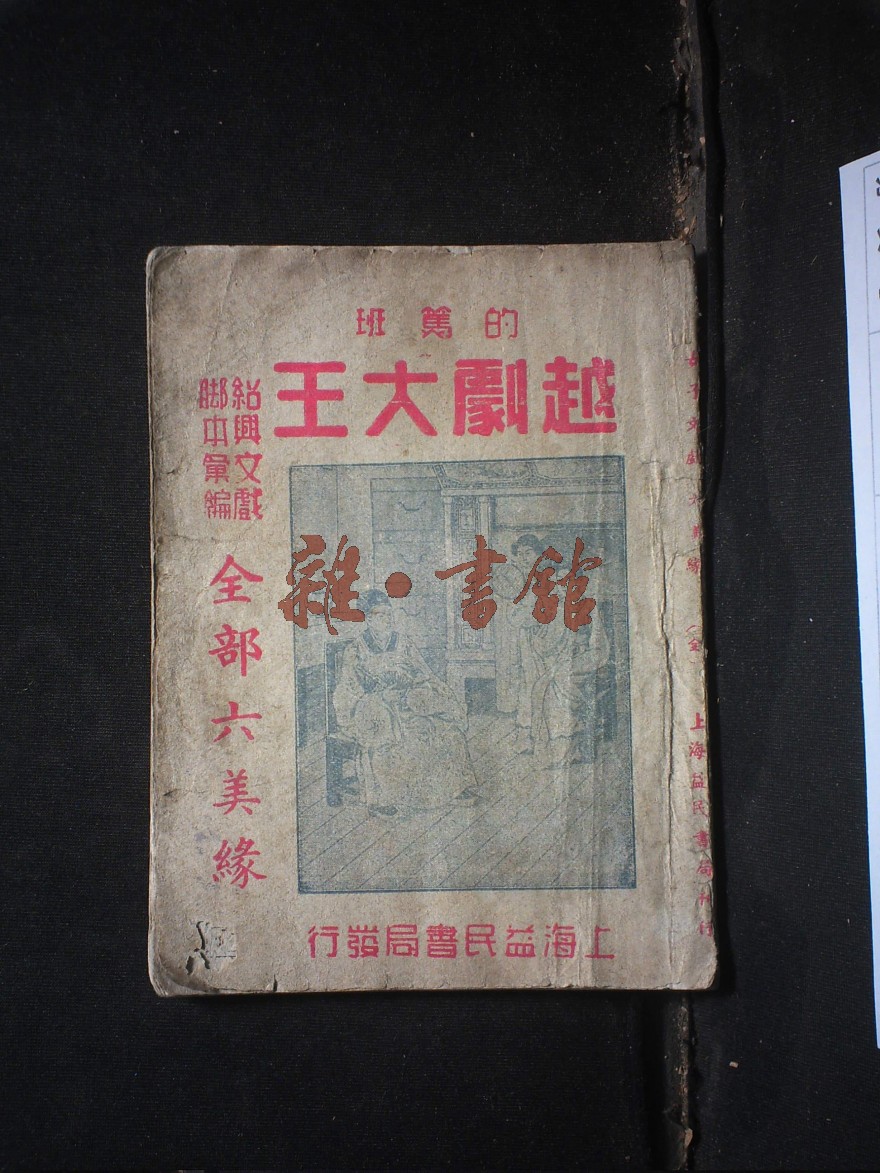 的篤班
越劇大王
紹興文戲
脚本彙編
全部六美緣
雜·書舘
上海益民書局發行
六美緣（全） 上海益民書局刊行